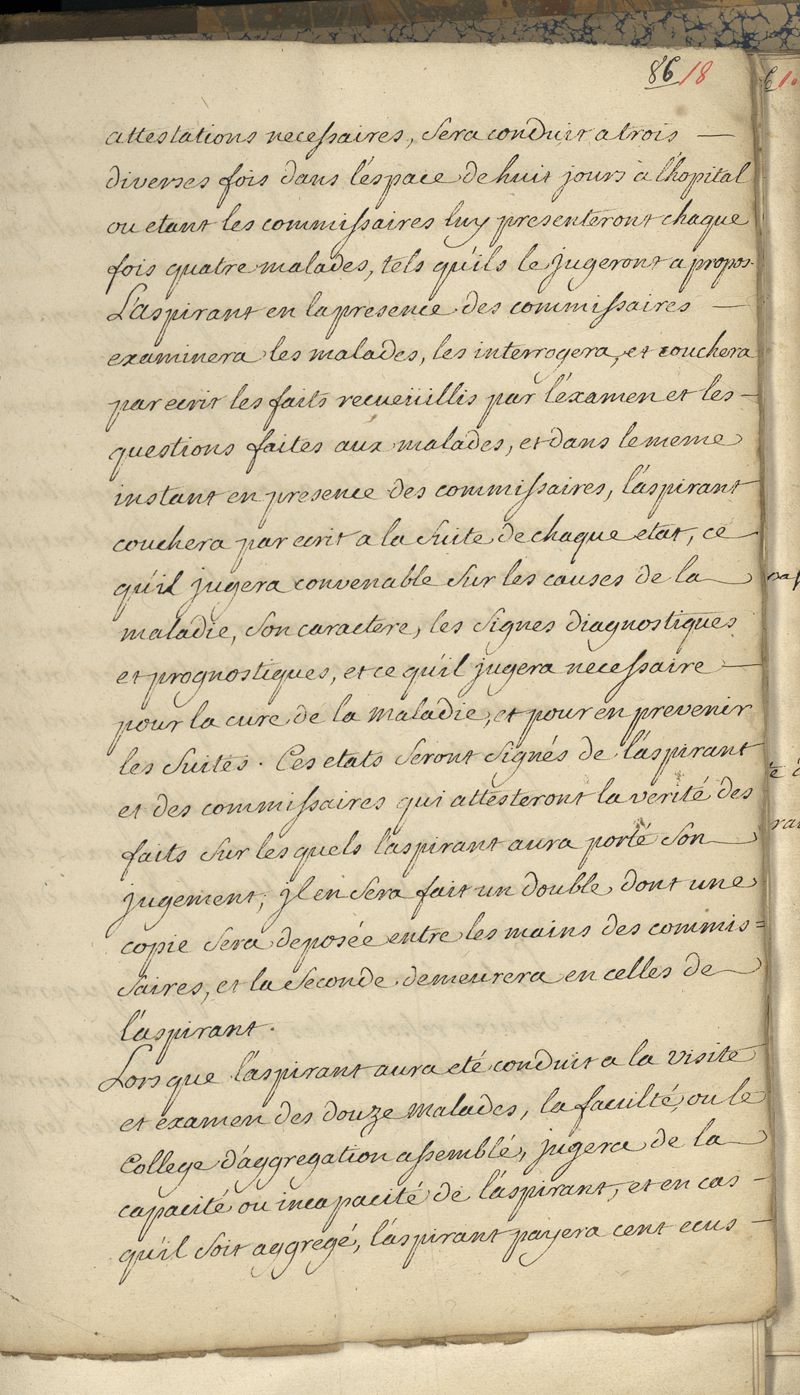 86 18
attestations necessaires, sera conduit a trois —
diverses fois dans l'espace de huit jours a l'hopital
ou etant les commissaires luy presenteront chaque
fois quatre malades, tels qu'ils le jugeront a propos.
L'aspirant en la presence des commissaires —
examinera les malades, les interrogera, et couchera
par ecrit les faits recueüillis par l'examen et les —
questions faites aux malades, et dans le meme
instant en presence des commissaires, l'aspirant
couchera par ecrit a la suite de chaque etat, ce
qu'il jugera convenable sur les causes de la
maladie, son caractere, les signes diagnostiques
et prognostiques, et ce qu'il jugera necessaire —
pour la cure de la maladie, et pour en prevenir
les suites. Ces etats seront signés de l'aspirant
et des commissaires qui attesteront la verité des
faits sur les quels l'aspirant aura porté son
jugement, jl en sera fait un double dont une
copie sera deposée entre les mains des commis=
saires, et la seconde demeurera en celles de
l'aspirant.
Lors que l'aspirant aura eté conduit a la visite
et examen des douze malades, la faculté, ou le
College d'aggregation assemblé, jugera de la
capacité ou incapacité de l'aspirant, et en cas -
qu'il soit aggregé, l'aspirant payera cent ecus -